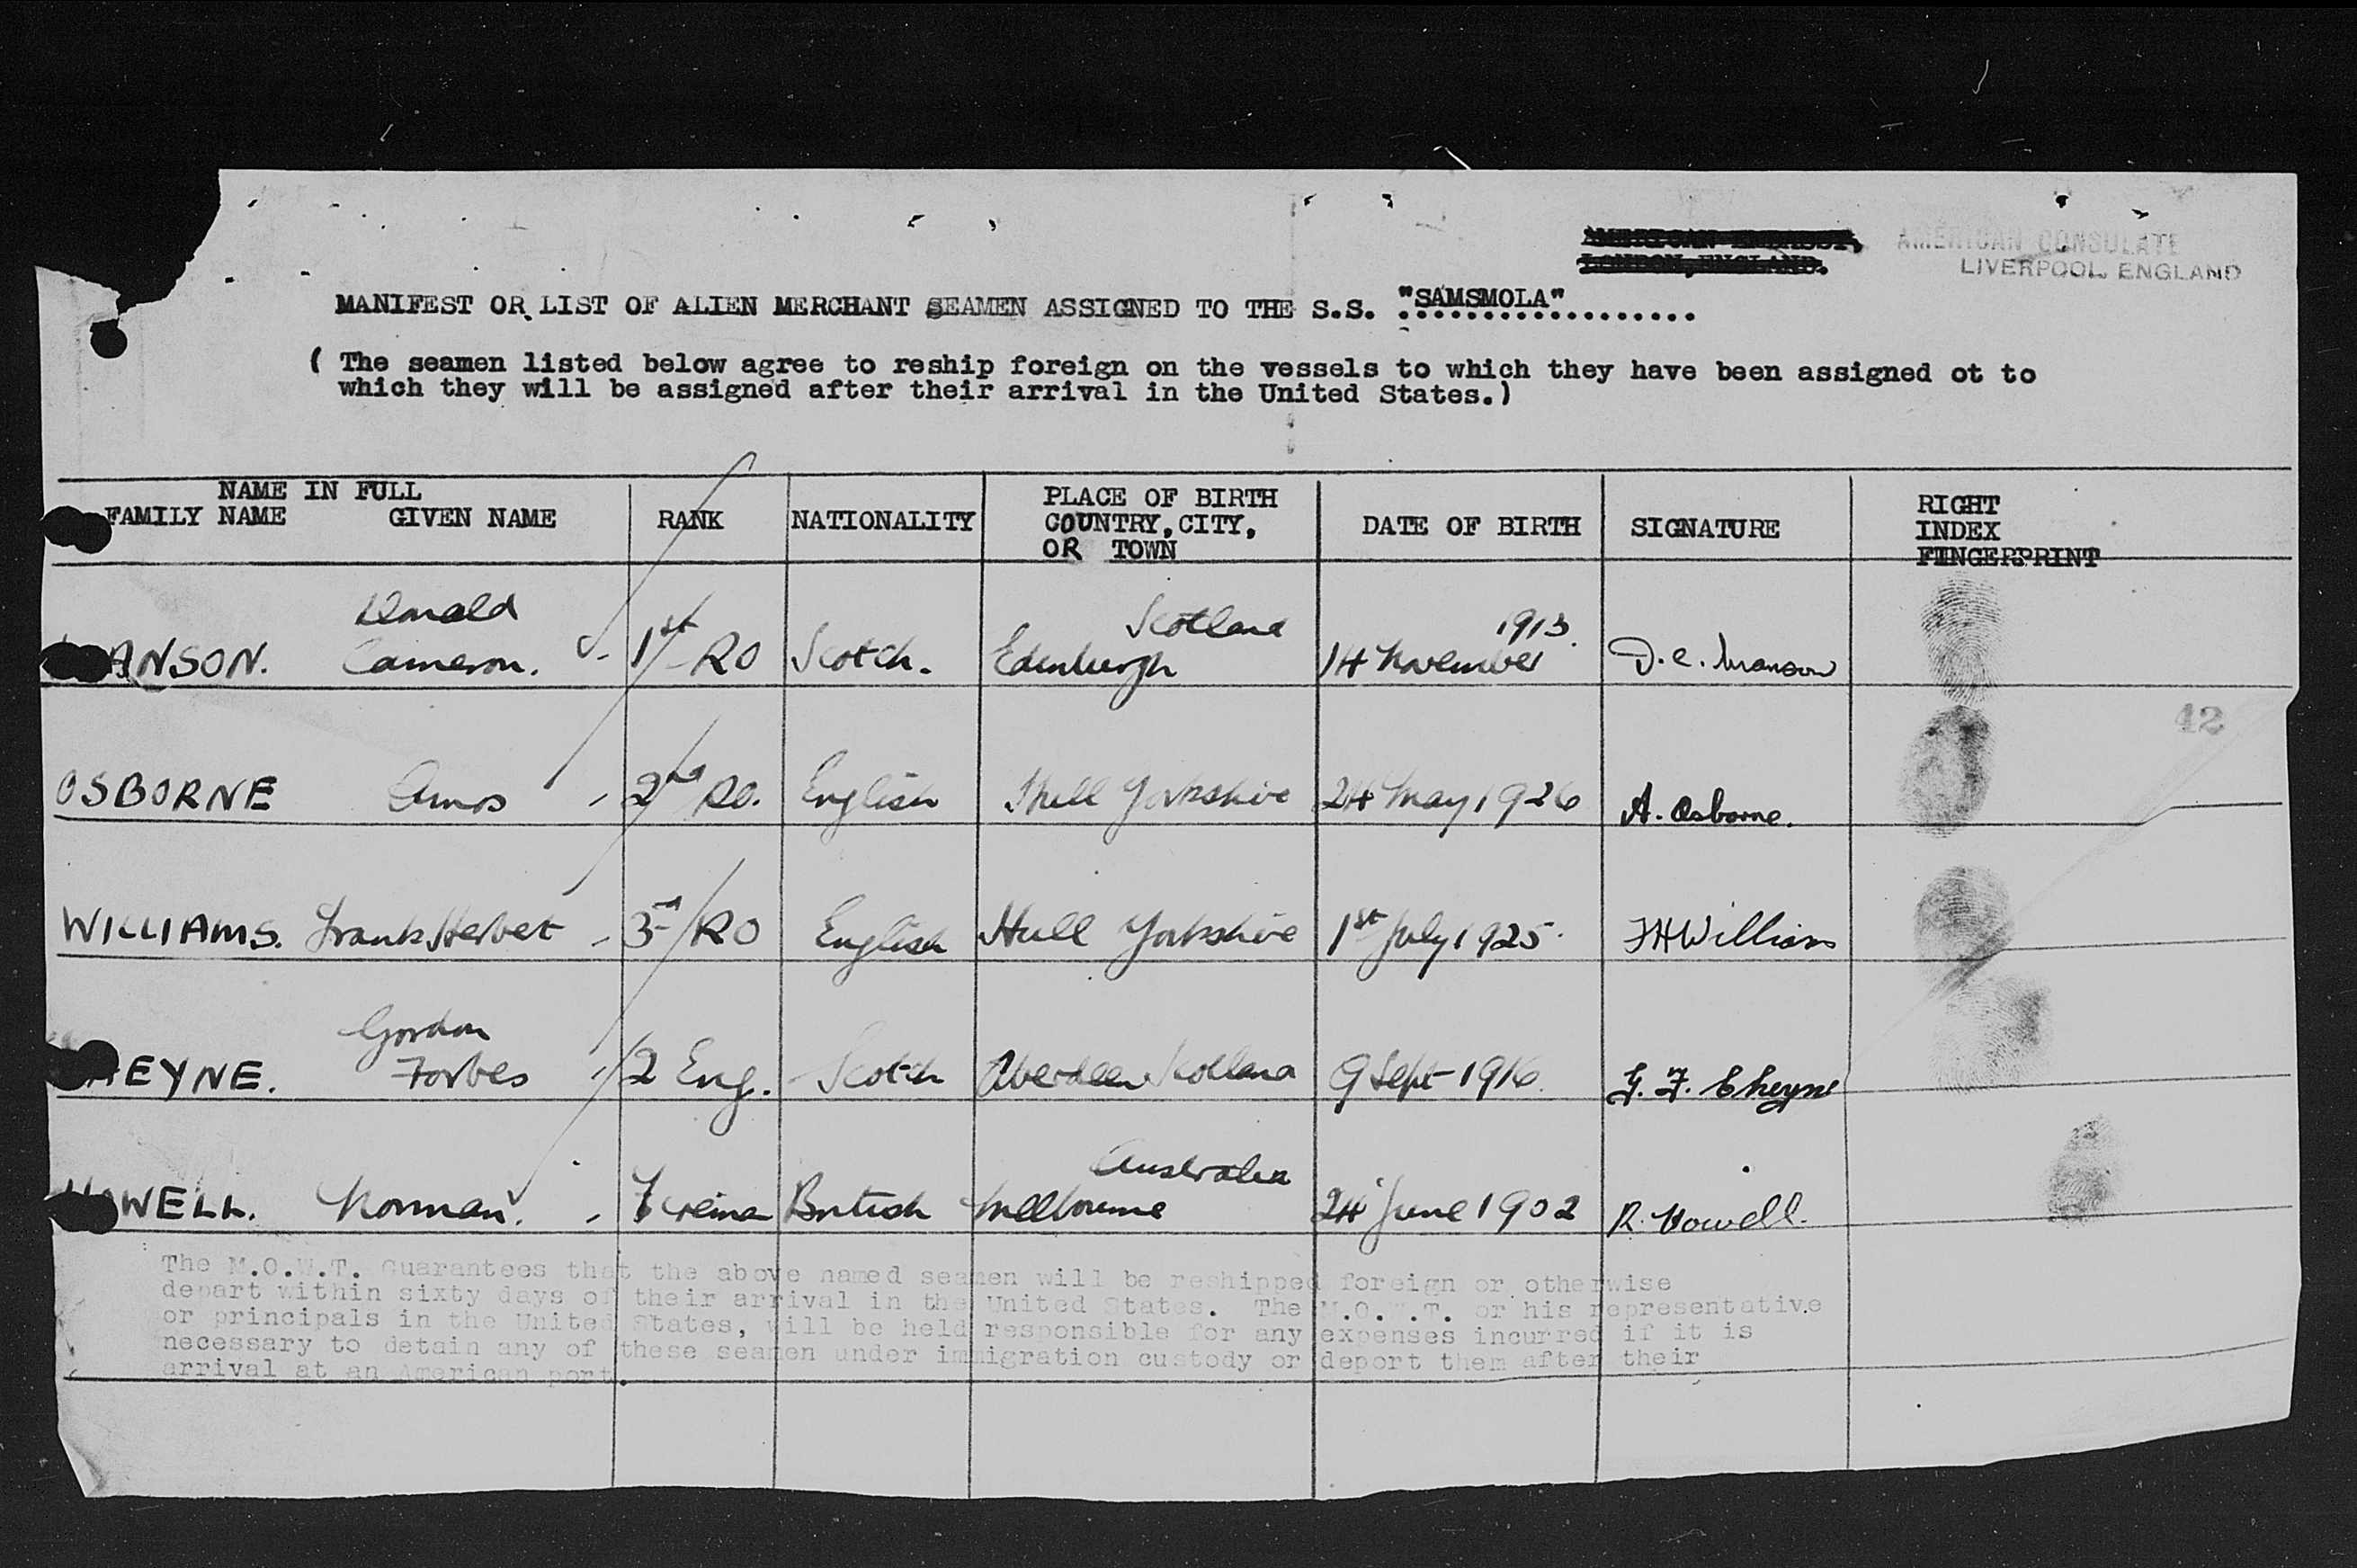 AMERICAN EMBASSY,
LONDON, ENGLAND.
AMERICAN CONSULATE
LIVERPOOL, ENGLAND
MANIFEST OR LIST OF ALIEN MERCHANT SEAMEN ASSIGNED TO THE S.S. "SAMSMOLA"..................
( The seamen listed below agree to reship foreign on the vessels to which they have been assigned ot to
which they will be assigned after their arrival in the United States.)
NAME IN FULL
FAMILY NAME GIVEN NAME RANK NATIONALITY PLACE OF BIRTH COUNTRY, CITY, OR TOWN DATE OF BIRTH SIGNATURE RIGHT INDEX FINGERPRINT
ANSON. Donald Cameron. 1st RO Scotch. Edenburgh Scotland 14 November 1913. D. C. Manson
42
OSBORNE Amos 2nd RO. English Hull Yorkshire 24 May 1926 A. Osborne.
WILLIAMS. Frank Herbet 3rd RO English Hull Yorkshire 1st July 1925. FHWilliams
HEYNE. Gordon Forbes 2 Eng. Scotch Aberdeen Scotland 9 Sept 1916. G. F. Cheyne
OWELL. Norman. British Melbourne Australia 24 June 1902 R. Howell.
The M.O.W.T. Guarantees that the above named seamen will be reshipped foreign or otherwise
depart within sixty days of their arrival in the United States. The M.O.W.T. or his representative
or principals in the United States, will be held responsible for any expenses incurred if it is
necessary to detain any of these seamen under immigration custody or deport them after their
arrival at an American port.